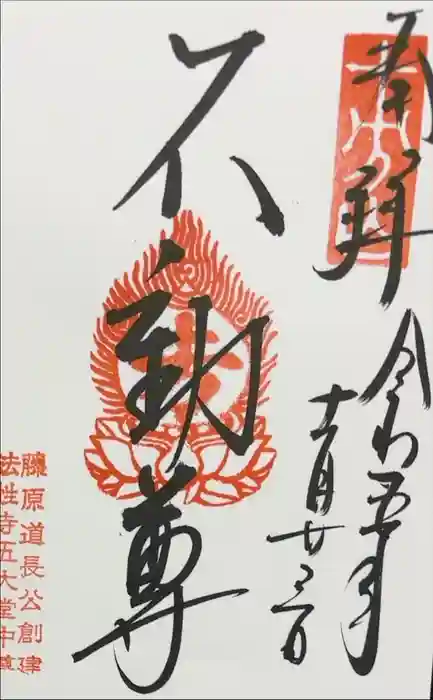 奉拝
令和五年
十二月廿三日
不動尊
藤原道長公創建
法性寺五大堂中尊